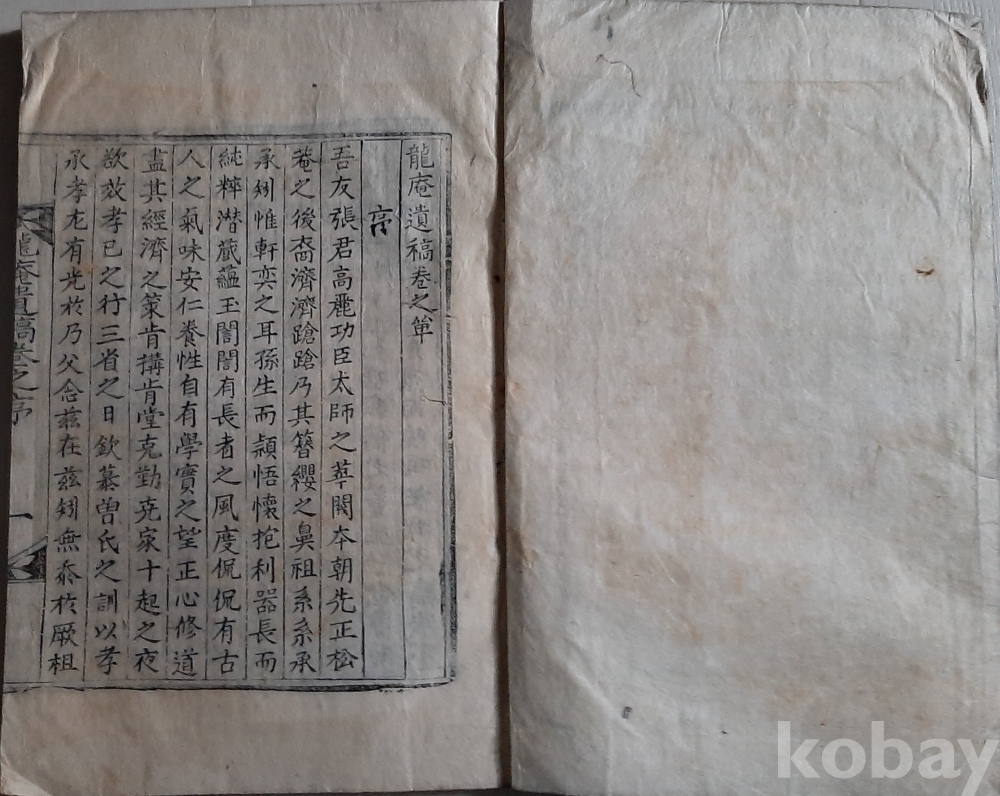 龍庵遺稿卷之單
序
吾友張君高麗功臣太師之華閥本朝先正松
菴之後裔濟濟蹌蹌乃其簪纓之鼻祖系系承
承矧惟軒奕之耳孫生而頴悟懷抱利器長而
純粹潜藏蘊玉誾誾有長者之風度侃侃有古
人之氣味安仁養性自有學實之望正心修道
盡其經濟之策肯搆肯堂克勤克家十起之夜
欲效孝已之行三省之日欽慕曾氏之訓以孝
承孝尤有光於乃父念兹在兹矧無忝於厥祖
龍庵遺稿卷之序
一
kobay